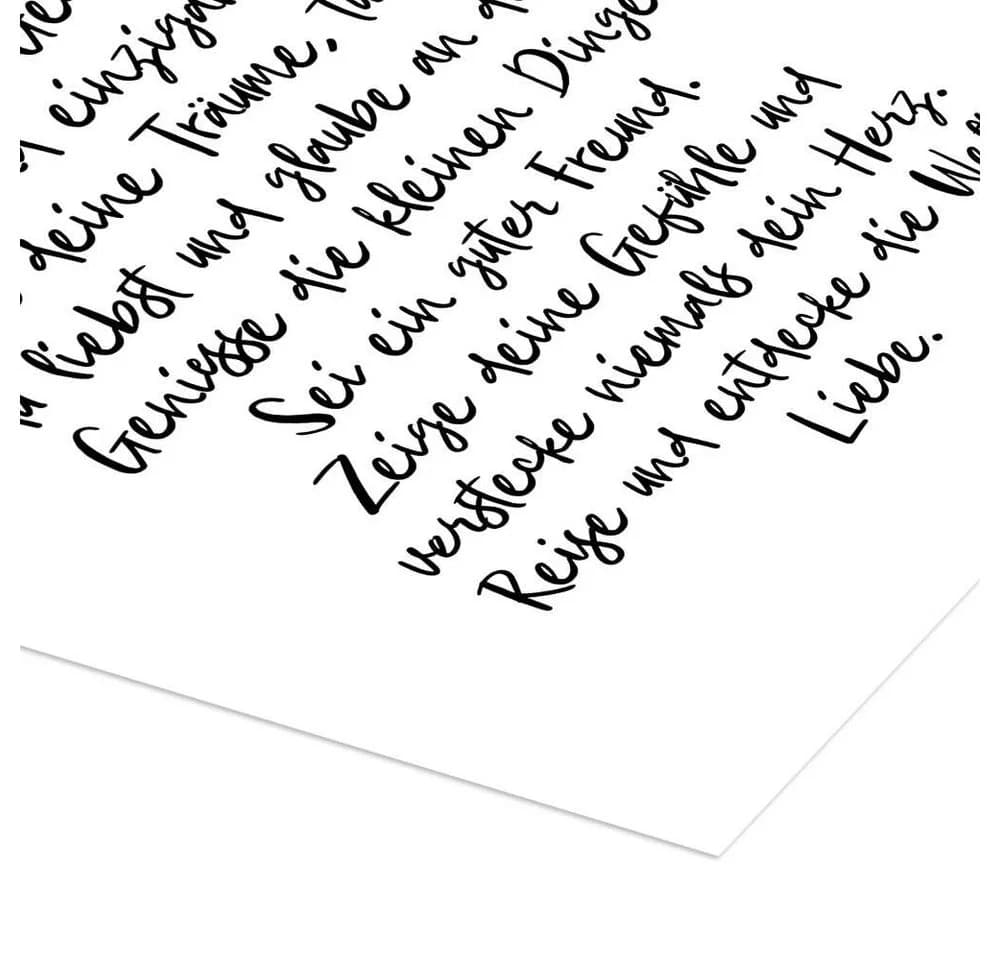 einziga
deine Träume,
liebst und glaube an d
Geniesse die kleinen Dinge
Sei ein guter Freund.
Zeige deine Gefühle und
verstecke niemals dein Herz.
Reise und entdecke die We
Liebe.